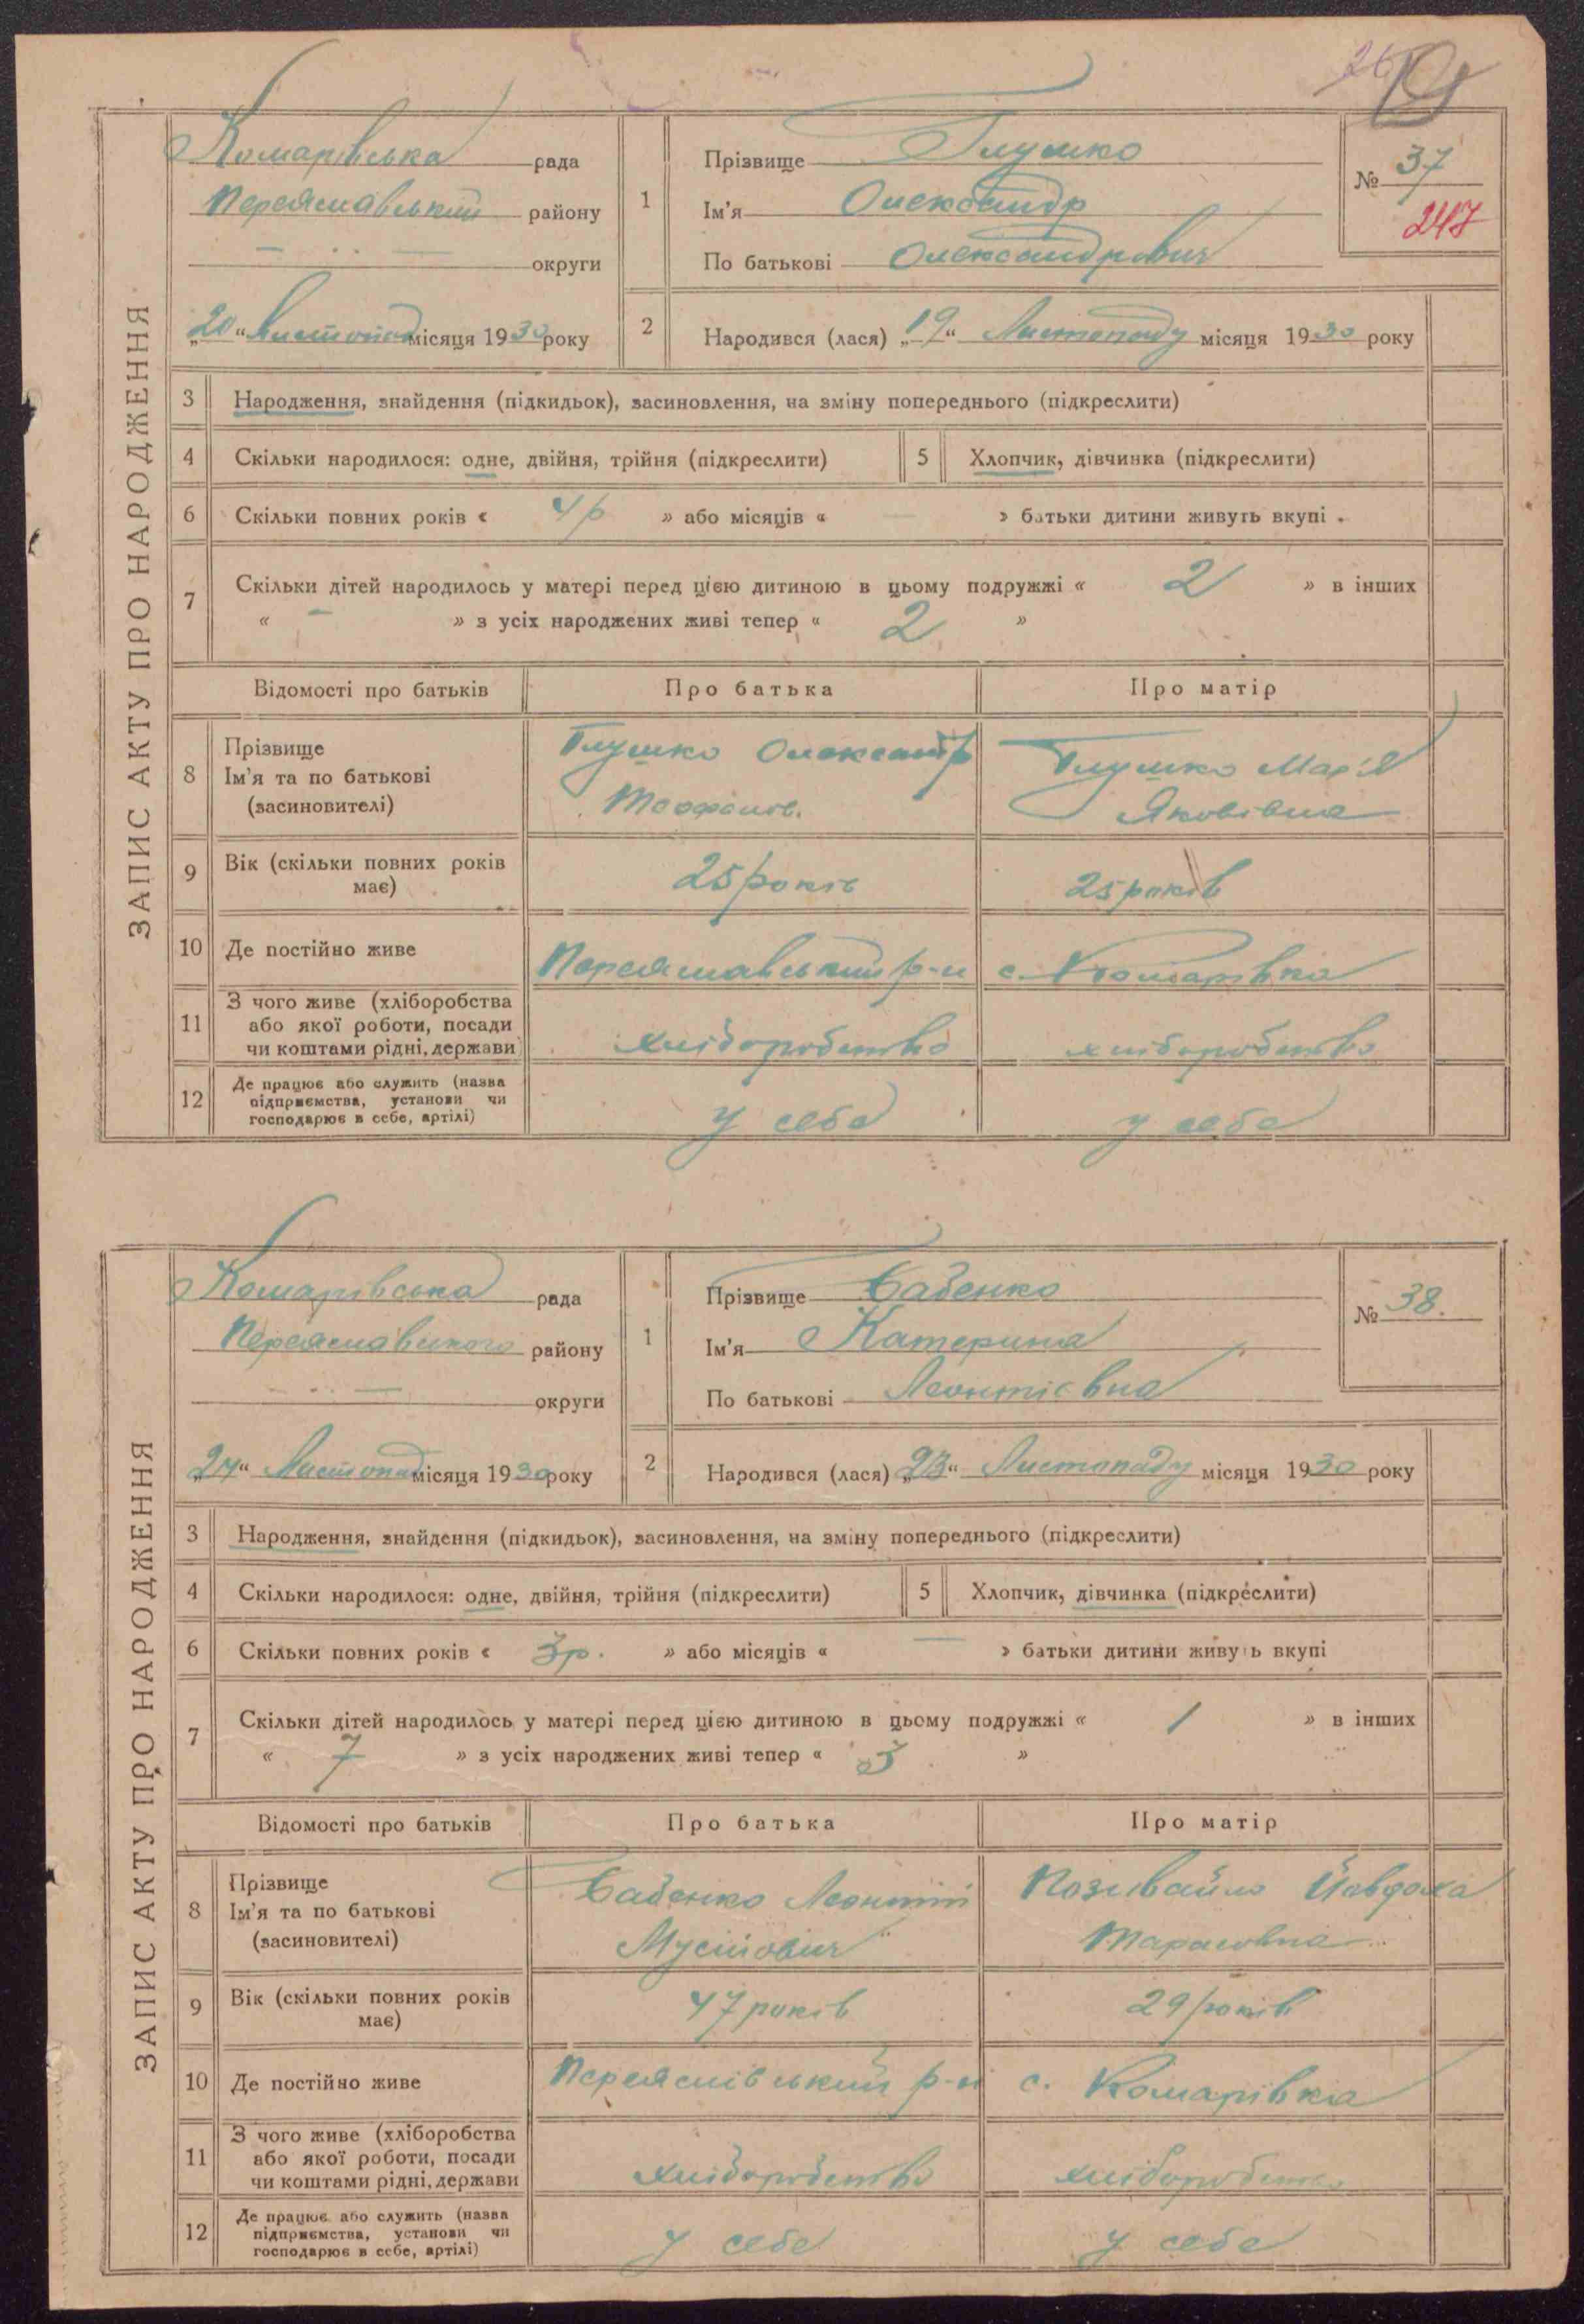 26
ЗАПИС АКТУ ПРО НАРОДЖЕННЯ
Комарівська рада
Переяславський району
— ·· — округи
„20“ Листопад місяця 1930 року
1
Прізвище Глушко
Ім'я Олександр
По батькові Олександрович
№ 37
247
2
Народився (лася) „19“ Листопаду місяця 1930 року
3 Народження, знайдення (підкидьок), засиновлення, на зміну попереднього (підкреслити)
4 Скільки народилося: одне, двійня, трійня (підкреслити) 5 Хлопчик, дівчинка (підкреслити)
6 Скільки повних років « 4 р » або місяців « — » батьки дитини живуть вкупі .
7 Скільки дітей народилось у матері перед цією дитиною в цьому подружжі « 2 » в інших
« – » з усіх народжених живі тепер « 2 »
Відомості про батьків Про батька Про матір
8 Прізвище
Ім'я та по батькові
(засиновителі)
Глушко Олександр
Теофанов.
Глушко Марія
Яковівна
9 Вік (скільки повних років
має)
25 років 25 років
10 Де постійно живе Переяславський р-н с. Комарівка
11 З чого живе (хліборобства
або якої роботи, посади
чи коштами рідні, держави)
хліборобство хліборобство
12 Де працює або служить (назва
підприємства, установи чи
господарює в себе, артілі)
у себе у себе
ЗАПИС АКТУ ПРО НАРОДЖЕННЯ
Комарівська рада
Переяславського району
— ·· — округи
„24“ Листопад місяця 1930 року
1
Прізвище Бабенко
Ім'я Катерина
По батькові Леонтієвна
№ 38.
2
Народився (лася) „23“ Листопаду місяця 1930 року
3 Народження, знайдення (підкидьок), засиновлення, на зміну попереднього (підкреслити)
4 Скільки народилося: одне, двійня, трійня (підкреслити) 5 Хлопчик, дівчинка (підкреслити)
6 Скільки повних років « 3 р. » або місяців « — » батьки дитини живуть вкупі
7 Скільки дітей народилось у матері перед цією дитиною в цьому подружжі « 1 » в інших
« 7 » з усіх народжених живі тепер « »
Відомості про батьків Про батька Про матір
8 Прізвище
Ім'я та по батькові
(засиновителі)
Бабенко Леонтій
Мусійович
Позивайло Йавдоха
Тарасовна
9 Вік (скільки повних років
має)
47 років 29 років
10 Де постійно живе Переяслівський р-н с. Комарівка
11 З чого живе (хліборобства
або якої роботи, посади
чи коштами рідні, держави
хліборобство хліборобство
12 Де працює або служить (назва
підприємства, установи чи
господарює в себе, артілі)
у себе у себе